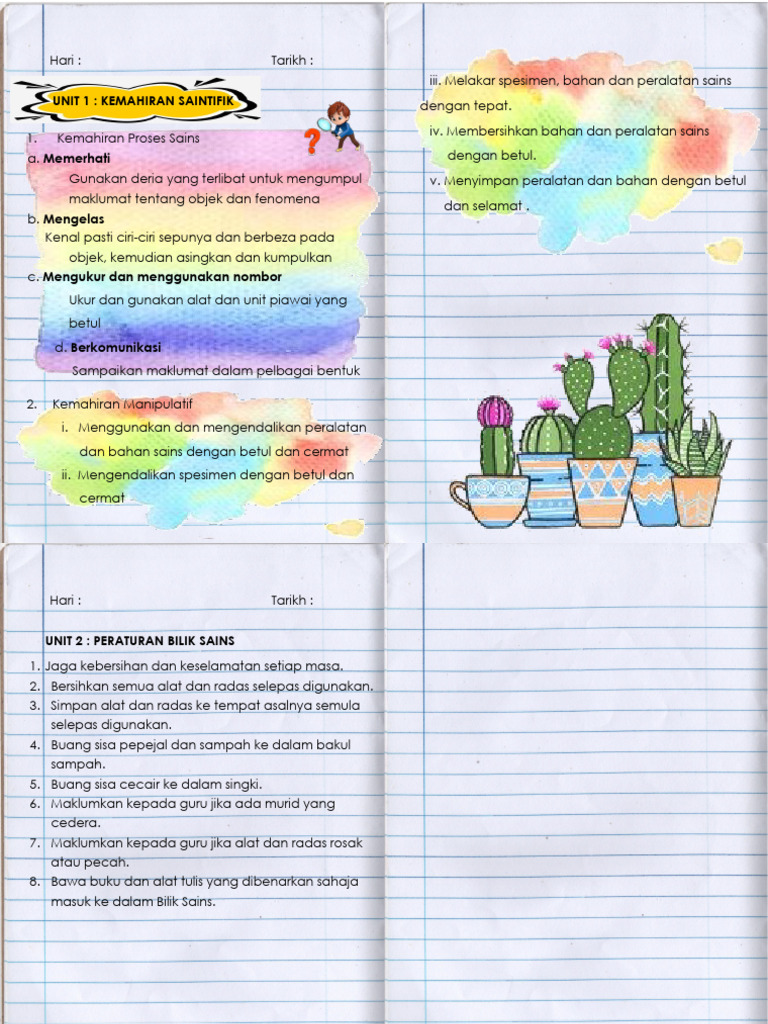 Hari : Tarikh :
UNIT 1 : KEMAHIRAN SAINTIFIK
1. Kemahiran Proses Sains
a. Memerhati
Gunakan deria yang terlibat untuk mengumpul
maklumat tentang objek dan fenomena
b. Mengelas
Kenal pasti ciri-ciri sepunya dan berbeza pada
objek, kemudian asingkan dan kumpulkan
c. Mengukur dan menggunakan nombor
Ukur dan gunakan alat dan unit piawai yang
betul
d. Berkomunikasi
Sampaikan maklumat dalam pelbagai bentuk
2. Kemahiran Manipulatif
i. Menggunakan dan mengendalikan peralatan
dan bahan sains dengan betul dan cermat
ii. Mengendalikan spesimen dengan betul dan
cermat
iii. Melakar spesimen, bahan dan peralatan sains
dengan tepat.
iv. Membersihkan bahan dan peralatan sains
dengan betul.
v. Menyimpan peralatan dan bahan dengan betul
dan selamat .
Hari : Tarikh :
UNIT 2 : PERATURAN BILIK SAINS
1. Jaga kebersihan dan keselamatan setiap masa.
2. Bersihkan semua alat dan radas selepas digunakan.
3. Simpan alat dan radas ke tempat asalnya semula
selepas digunakan.
4. Buang sisa pepejal dan sampah ke dalam bakul
sampah.
5. Buang sisa cecair ke dalam singki.
6. Maklumkan kepada guru jika ada murid yang
cedera.
7. Maklumkan kepada guru jika alat dan radas rosak
atau pecah.
8. Bawa buku dan alat tulis yang dibenarkan sahaja
masuk ke dalam Bilik Sains.